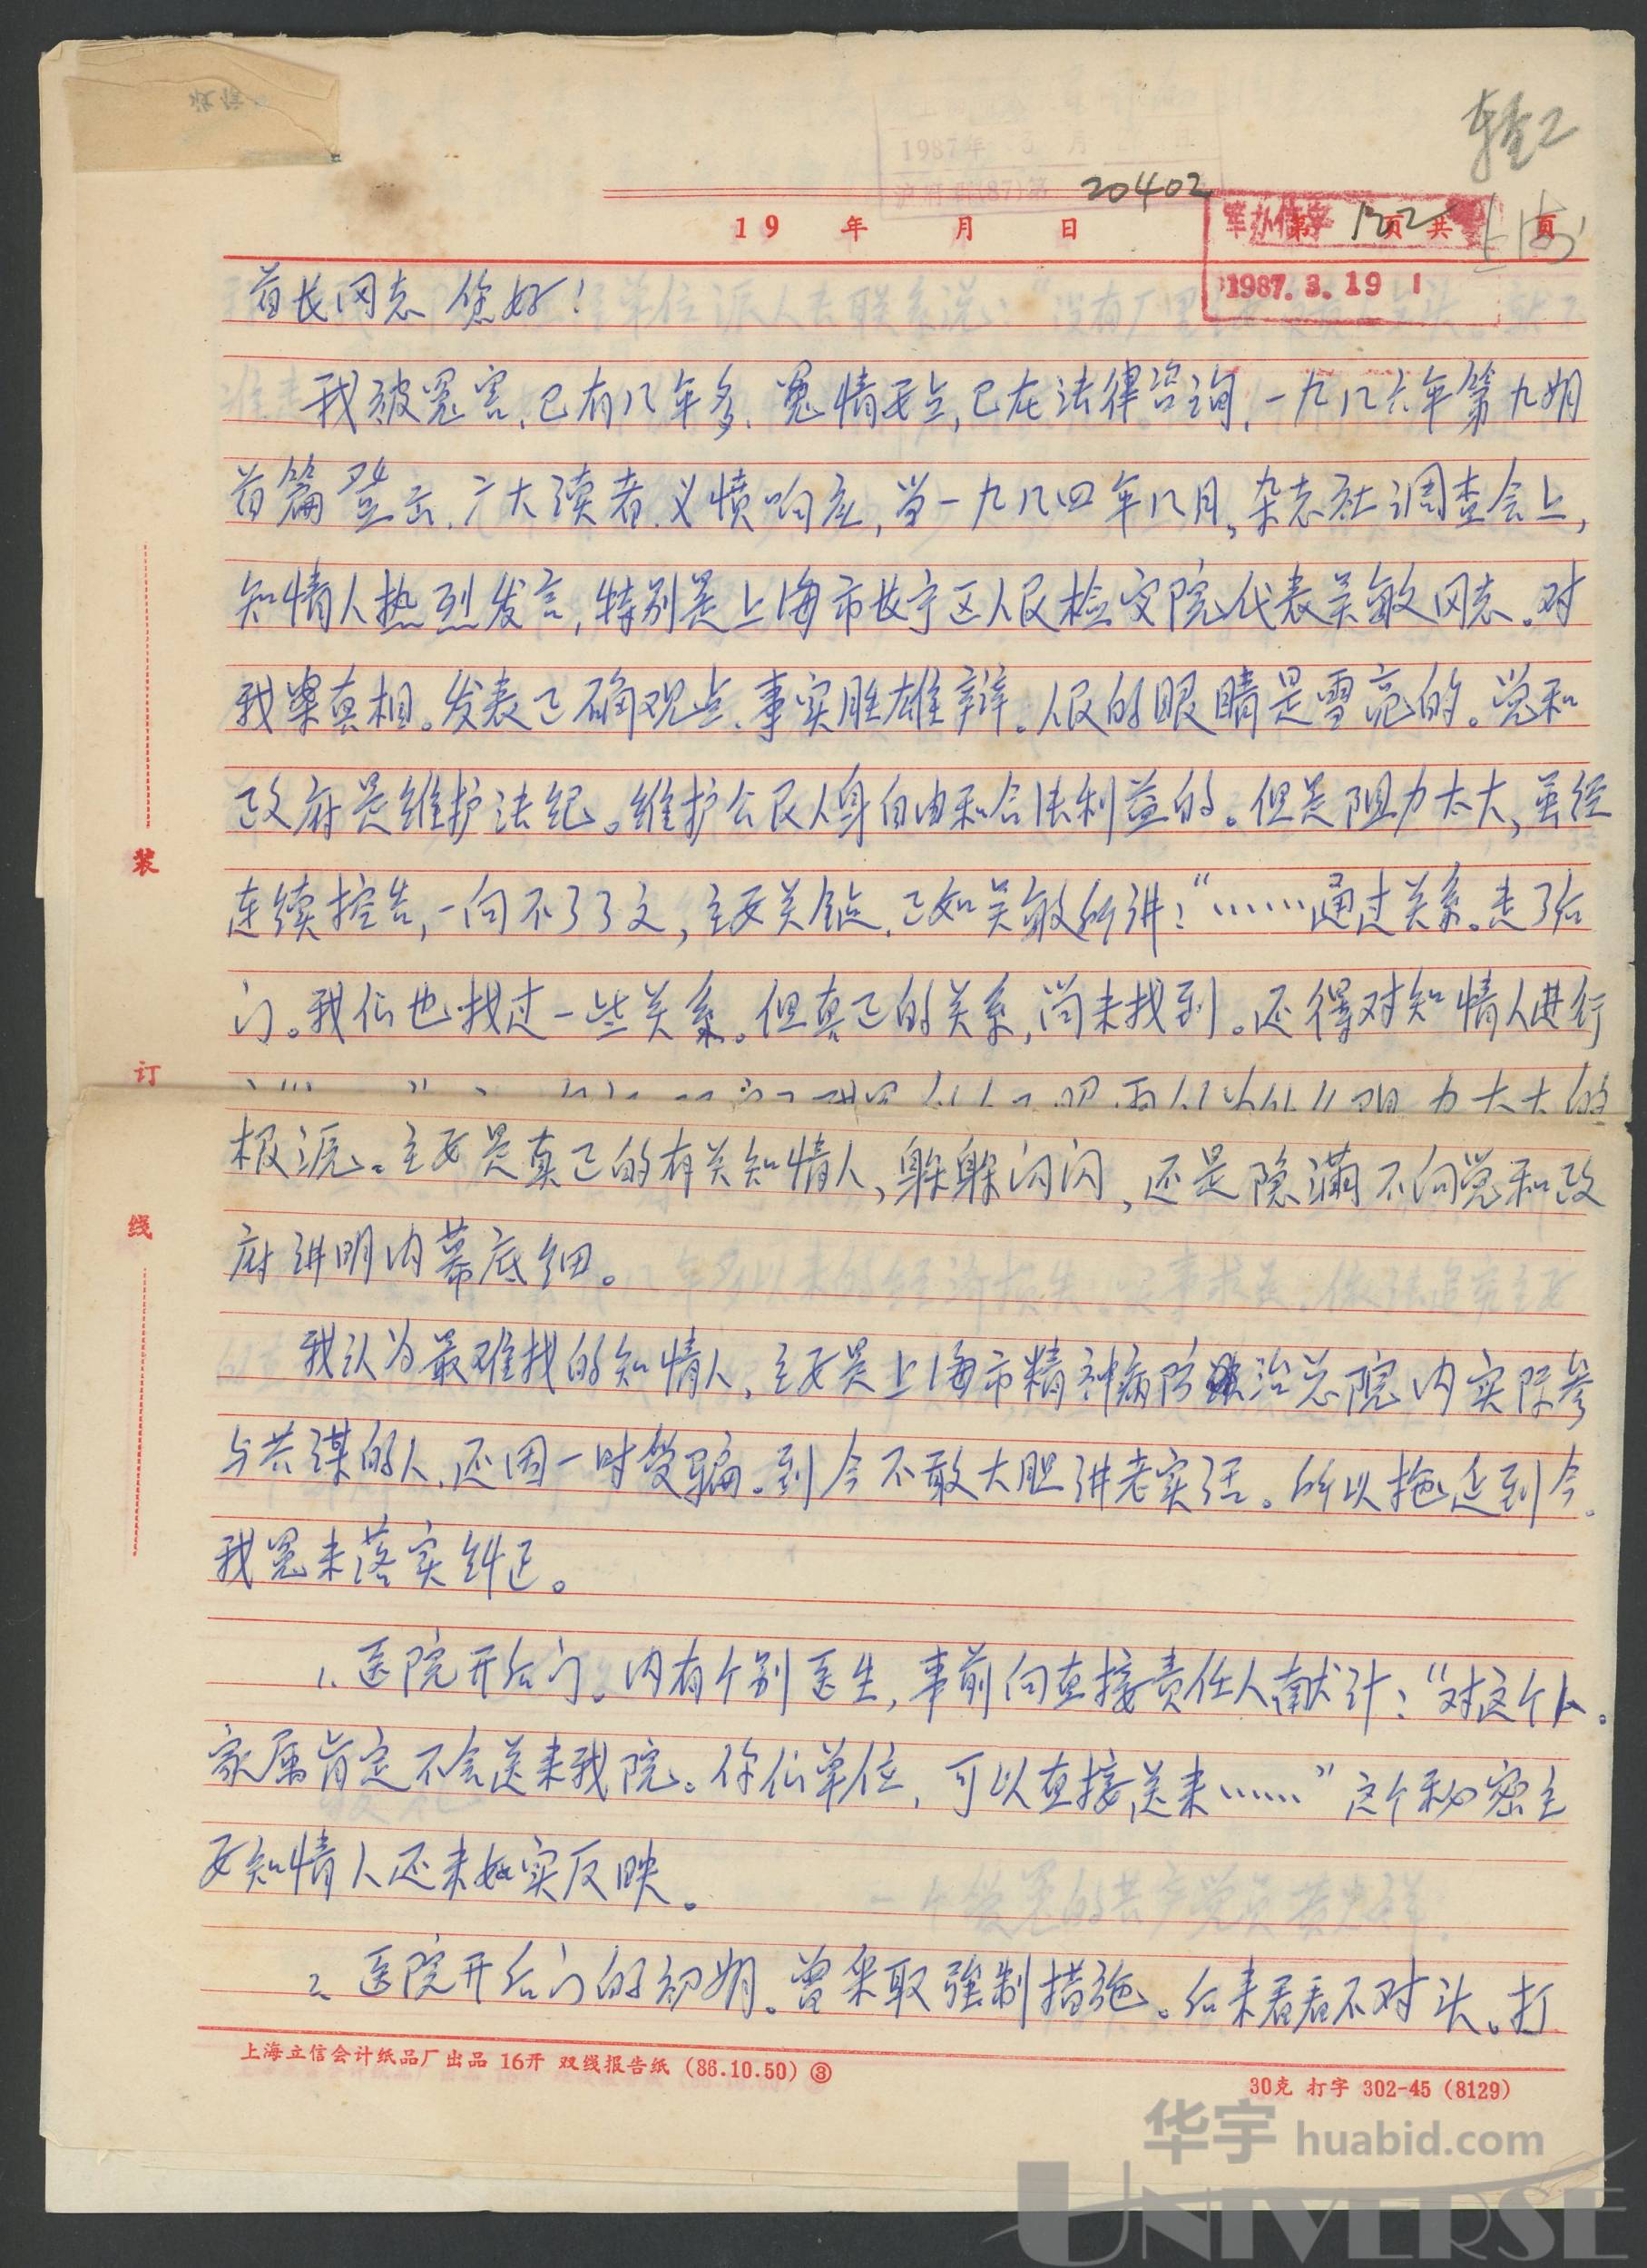 20402
19 年 月 日 第 页 共 页
1987.3.19
上海
首长同志 您好!
我被冤害,已有八年多,冤情要点,已在法律咨询,一九八六年第九期
首篇登出,广大读者义愤响应,当一九八四年八月,杂志社调查会上,
知情人热烈发言,特别是上海市长宁区人民检察院代表关敏同志。对
我案真相。发表正确观点、事实胜雄辩。人民的眼睛是雪亮的。党和
政府是维护法纪。维护公民人身自由和合法利益的。但是阻力太大,虽经
连续控告,一向不了了之,主要关键,正如关敏所讲:“……通过关系。走了后
门。我们也找过一些关系。但真正的关系,尚未找到。还得对知情人进行
阻力太大的
根源。主要是真正的有关知情人,躲躲闪闪,还是隐瞒不向党和政
府讲明内幕底细。
我认为最难找的知情人,主要是上海市精神病防治总院内实际参
与共谋的人,还因一时受骗。到今不敢大胆讲老实话。所以拖延到今。
我冤未落实纠正。
1、医院开后门。内有个别医生,事前向直接责任人献计:“对这个人。
家属肯定不会送来我院。你们单位,可以直接送来……”这个秘密主
要知情人还未如实反映。
2、医院开后门的初期。曾采取强制措施。后来看看不对头。打
装
订
线
上海立信会计纸品厂出品 16开 双线报告纸 (86.10.50) ③
30克 打字 302-45 (8129)
华宇 huabid.com
UNIVERSE